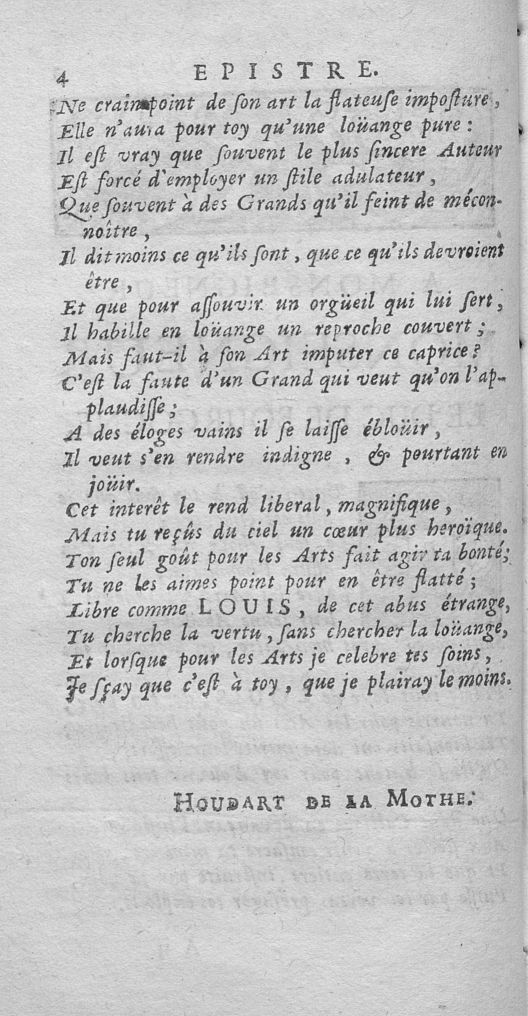 4 EPISTRE.
Ne crain point de ſon art la flateuſe impoſture,
Elle n'aura pour toy qu'une loüange pure :
Il eſt vray que ſouvent le plus ſincere Auteur
Eſt forcé d'employer un ſtile adulateur,
Que ſouvent à des Grands qu'il feint de mécon-
noître,
Il dit moins ce qu'ils ſont, que ce qu'ils devroient
être,
Et que pour aſſouvir un orgüeil qui lui ſert,
Il habille en loüange un reproche couvert ;
Mais faut-il à ſon Art imputer ce caprice ?
C'eſt la faute d'un Grand qui veut qu'on l'ap-
plaudiſſe ;
A des éloges vains il ſe laiſſe ébloüir,
Il veut s'en rendre indigne, & pourtant en
joüir.
Cet interêt le rend liberal, magnifique,
Mais tu reçûs du ciel un cœur plus heroïque.
Ton ſeul goût pour les Arts fait agir ta bonté ;
Tu ne les aimes point pour en être flatté ;
Libre comme LOUIS, de cet abus étrange,
Tu cherche la vertu, ſans chercher la loüange,
Et lorſque pour les Arts je celebre tes ſoins,
Je ſçay que c'eſt à toy, que je plairay le moins.
HOUDART DE LA MOTHE.